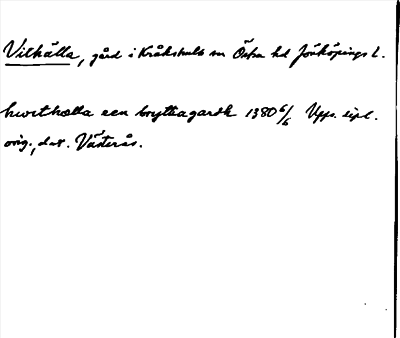 Vithälla, gård i Kråkshults sn Östra hd Jönköpings l.
hwithælla een bryttagardh 1380 6/6 Upps. dipl.
orig., dat. Västerås.